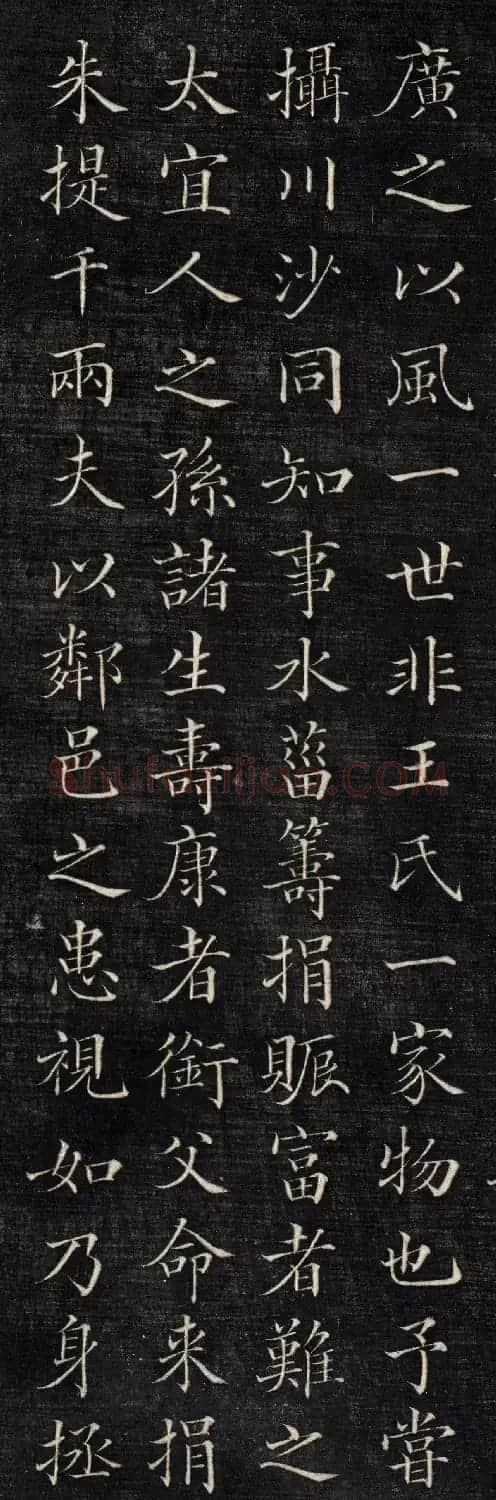 廣之以風一世非王氏一家物也予甞
攝川沙同知事水菑籌捐賑富者難之
太宜人之孫諸生壽康者銜父命来捐
朱提千兩夫以鄰邑之患視如乃身拯
Shufaziliao.COM